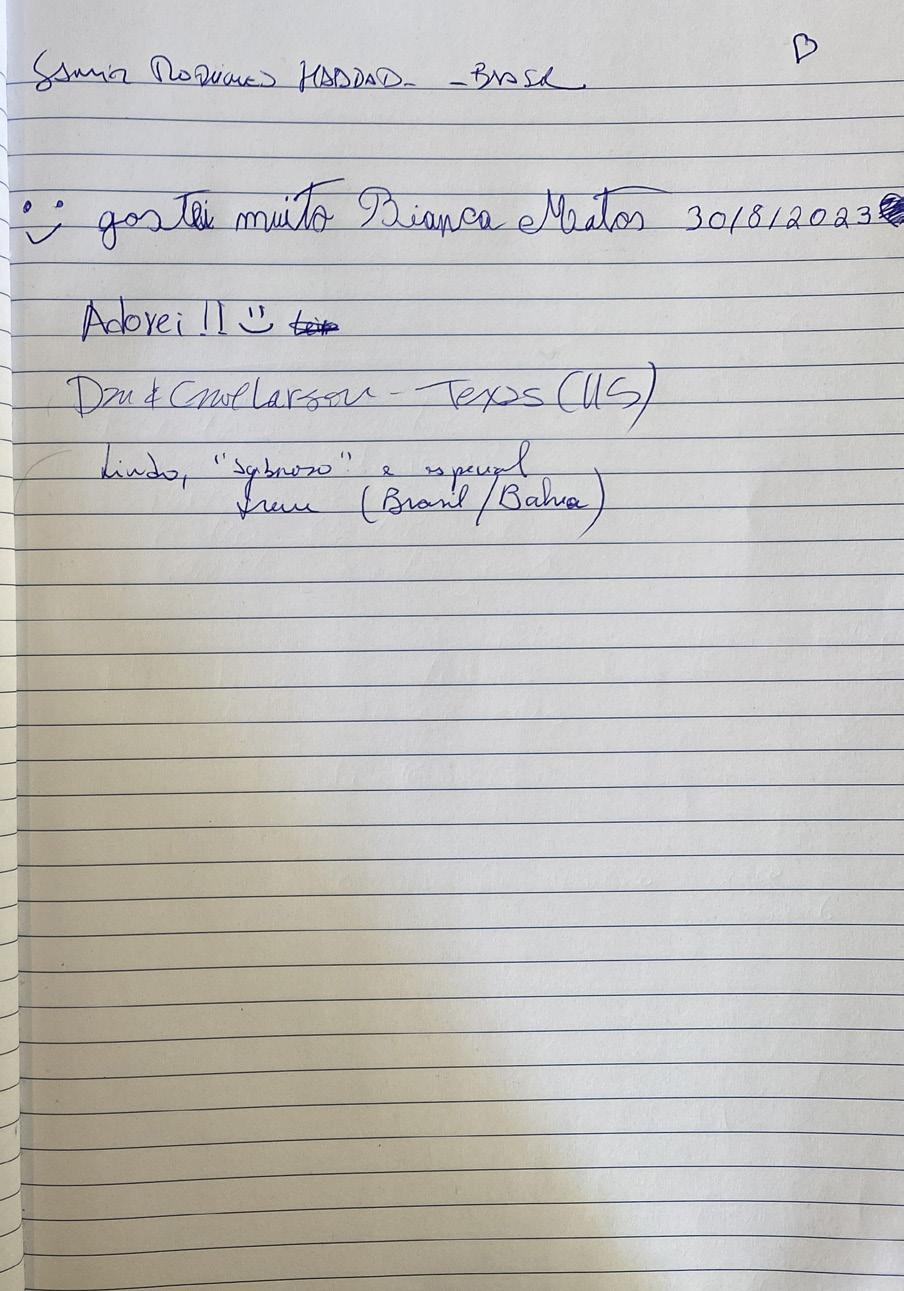 Samir Rodrigues HADDAD - BRASIL
gostei muito Bianca Matos 30/8/2023
Adorei!!
Larson - Texas (US)
Lindo, "saboroso" e especial
Irene (Brasil/Bahia)